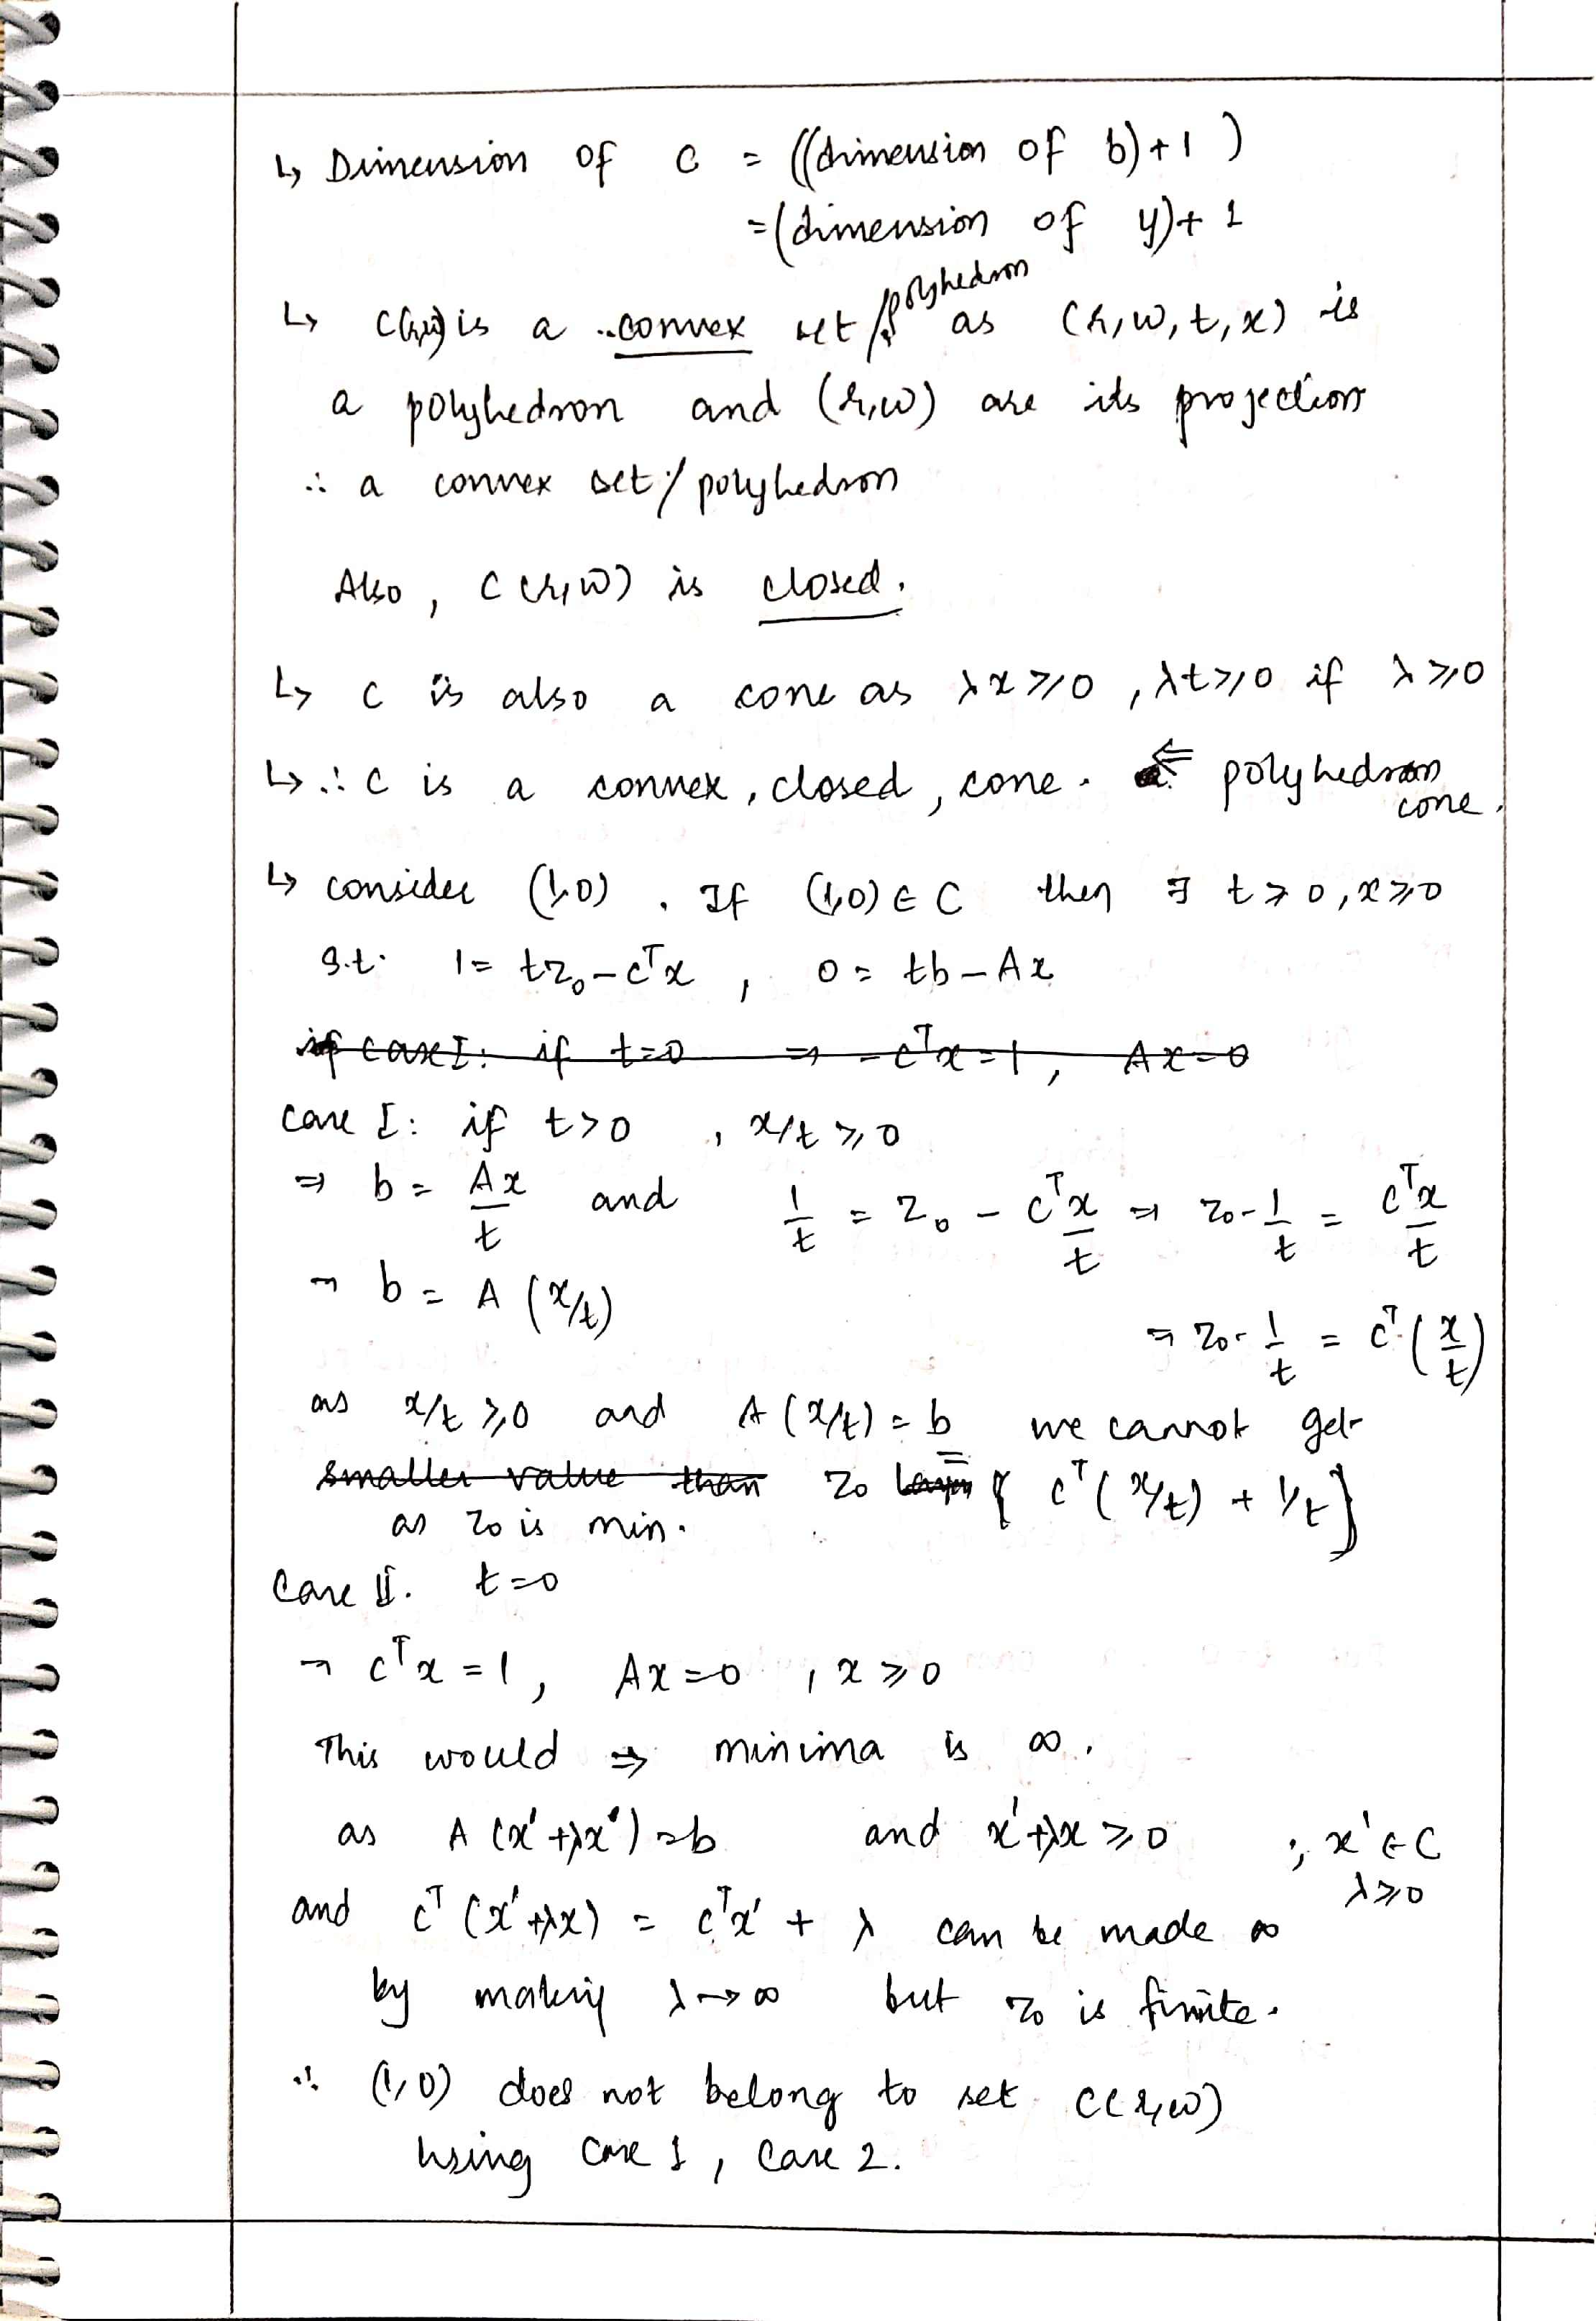 ↳ Dimension of C = ((dimension of b)+1)
= (dimension of y)+1
↳ C(r,w) is a convex set / polyhedron as (r,w,t,x) is
a polyhedron and (r,w) are its projection
∴ a convex set / polyhedron
Also, C(r,w) is closed.
↳ C is also a cone as λx ⩾ 0, λt ⩾ 0 if λ ⩾ 0
↳ ∴ C is a convex, closed, cone. ⇐ polyhedron cone.
↳ consider (1,0). If (1,0) ∈ C then ∃ t ⩾ 0, x ⩾ 0
s.t. 1 = tz₀ - cᵀx, 0 = tb - Ax
if case I: if t=0 ⇒ -cᵀx = 1, Ax=0
Case I: if t>0, x/t ⩾ 0
⇒ b = Ax/t and 1/t = z₀ - cᵀx/t ⇒ z₀ - 1/t = cᵀx/t
⇒ b = A(x/t)
⇒ z₀ - 1/t = cᵀ(x/t)
as x/t ⩾ 0 and A(x/t) = b we cannot get
smaller value than z₀ = { cᵀ(x/t) + 1/t }
as z₀ is min.
Case II. t=0
⇒ cᵀx = 1, Ax=0, x ⩾ 0
This would ⇒ minima is ∞.
as A(x'+λx) = b and x'+λx ⩾ 0 ; x' ∈ C
λ ⩾ 0
and cᵀ(x'+λx) = cᵀx' + λ can be made ∞
by making λ → ∞ but z₀ is finite.
∴ (1,0) does not belong to set C(r,w)
using Case 1, Case 2.